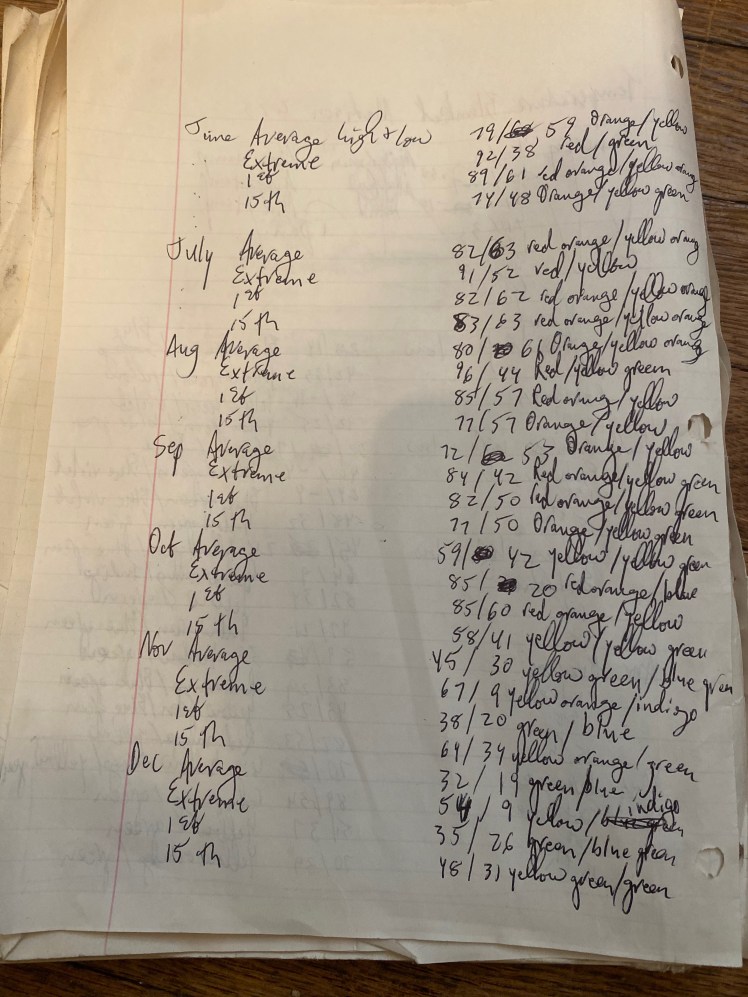 June Average high + low 79/59 Orange/yellow
Extreme 92/38 red/green
1st 89/61 red orange/yellow orang
15th 74/48 Orange/yellow green
July Average 82/63 red orange/yellow orang
Extreme 91/52 red/yellow
1st 82/62 red orange/yellow orang
15th 83/63 red orange/yellow orang
Aug Average 80/61 Orange/yellow orang
Extreme 96/44 Red/yellow green
1st 85/57 Red orang/yellow
15th 77/57 Orange/yellow
Sep Average 72/53 Orange/yellow
Extreme 84/42 Red orange/yellow green
1st 82/50 red orange/yellow green
15th 77/50 Orange/yellow green
Oct Average 59/42 yellow/yellow green
Extreme 85/20 red orange/blue
1st 85/60 red orange/yellow
15th 58/41 yellow/yellow green
Nov Average 45/30 yellow green/blue green
Extreme 67/9 yellow orange/indigo
1st 38/20 green/blue
15th 64/34 yellow orange/green
Dec Average 32/19 green/blue
Extreme 54/9 yellow/indigo
1st 35/26 green/blue green
15th 48/31 yellow green/green